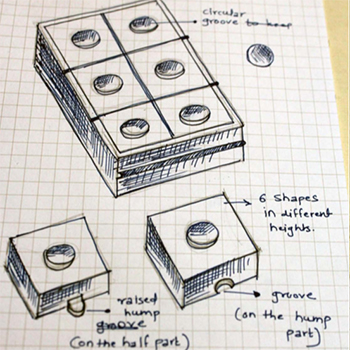 circular
groove to keep
6 shapes
in different
heights.
raised
hump
groove
(on the half part)
groove
(on the hump
part)